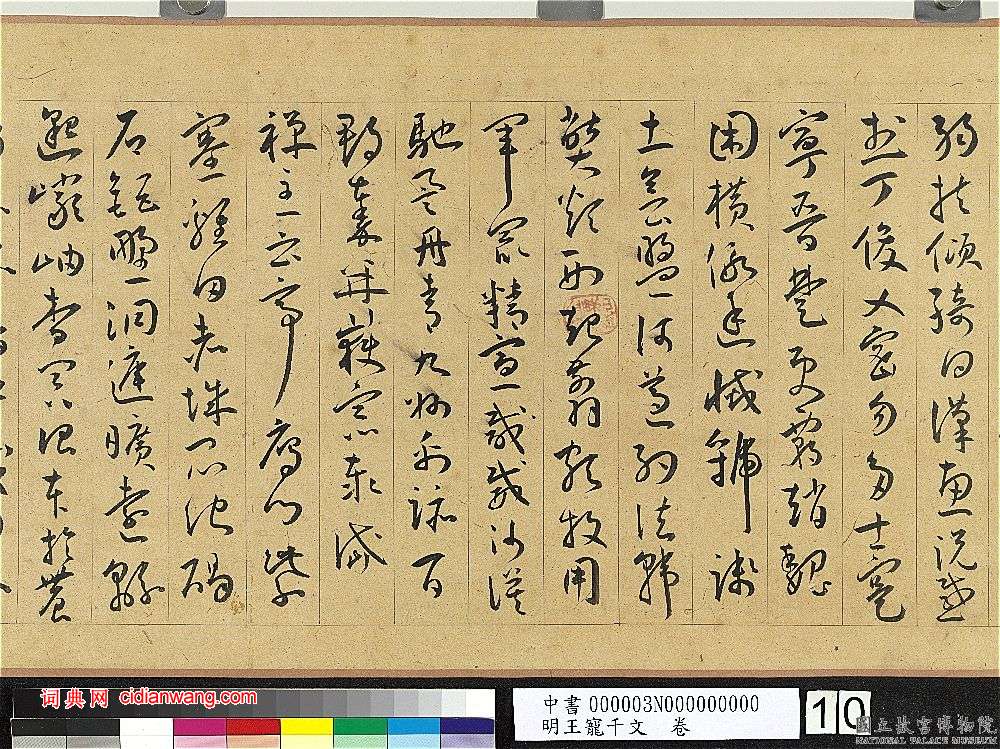 弱扶傾綺回漢惠說感
武丁俊乂密勿多士寔
寧晉楚更霸趙魏
困橫假途滅虢踐
土會盟何遵約法韓
弊煩刑起翦頗牧用
軍最精宣威沙漠
馳譽丹青九州禹跡百
郡秦并嶽宗恒岱
禪主云亭雁門紫
塞雞田赤城昆池碣
石鉅野洞庭曠遠緜
邈巖岫杳冥治本於農
词典网 cidianwang.com
中書000003N000000000
明王寵千文 卷
10
國立故宮博物院
NATIONAL PALACE MUSEUM